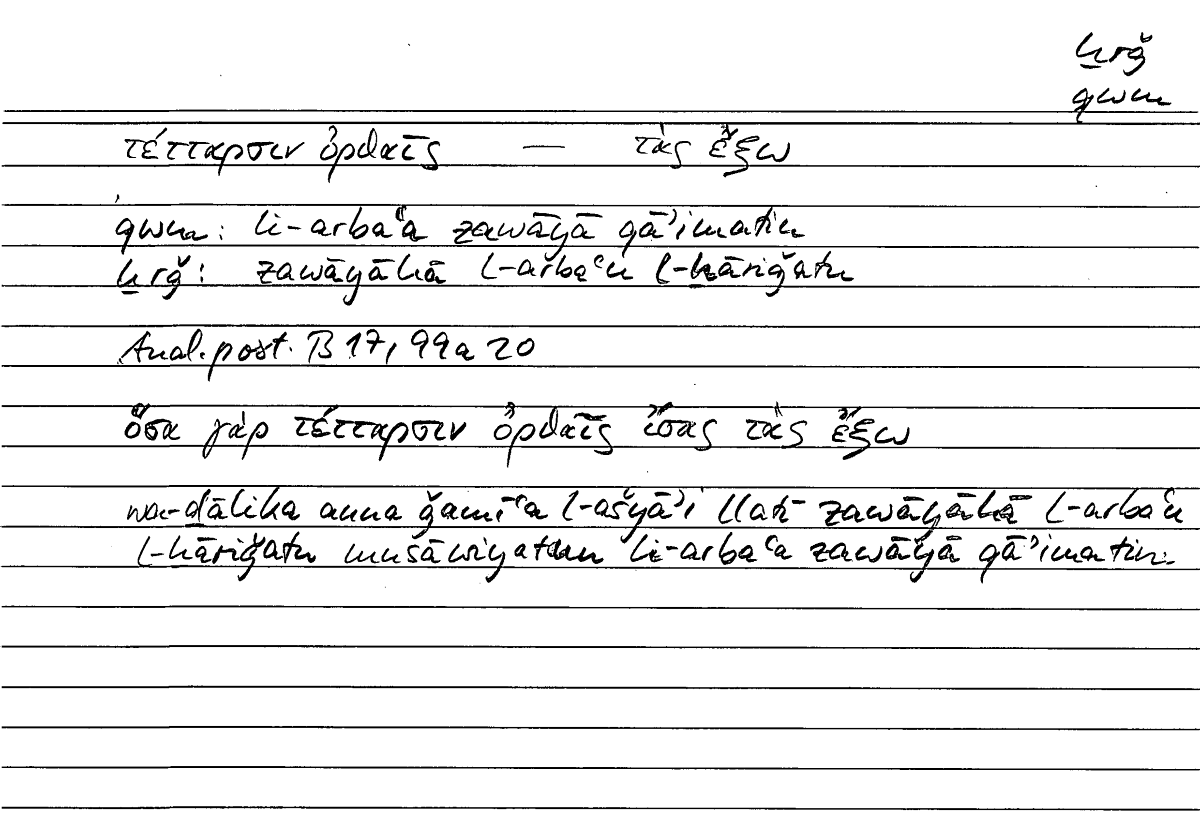 ḫrǧ
qwm
τέτταρσιν ὀρθαῖς — τὰς ἔξω
qwm: li-arbaʿa zawāyā qāʾimatin
ḫrǧ: zawāyāhā l-arbaʿu l-ḫāriǧatu
Anal. post. B 17, 99a 20
ὅσα γὰρ τέτταρσιν ὀρθαῖς ἴσας τὰς ἔξω
wa-ḏālika anna ǧamīʿa l-ašyāʾi llatī zawāyāhā l-arbaʿu
l-ḫāriǧatu musāwiyatun li-arbaʿa zawāyā qāʾimatin.